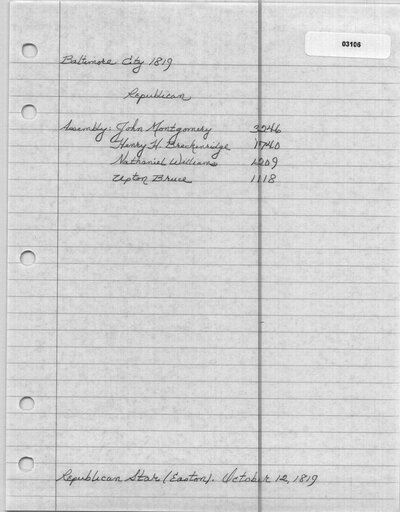 03106
Baltimore City 1819
Republican
Assembly: John Montgomery 3246
Henry H. Breckenridge 1740
Nathaniel Williams 1209
Upton Bruce 1118
Republican Star (Easton). October 12, 1819